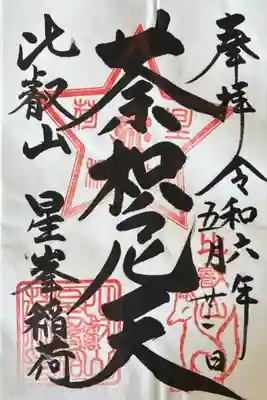 奉拝
令和六年
五月廿二日
荼枳尼天
比叡山
星峯稲荷